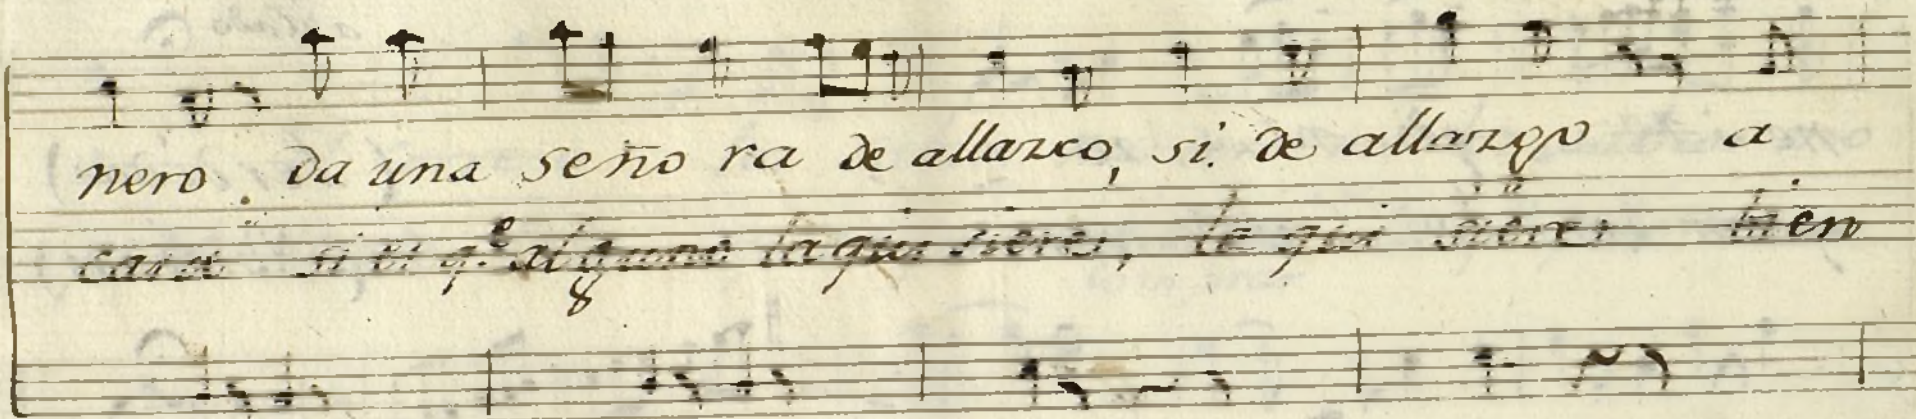 nero da una seño ra de allazco, si. de allazgo a
casa si es q.e alguno la qui sieres, la qui sieres bien